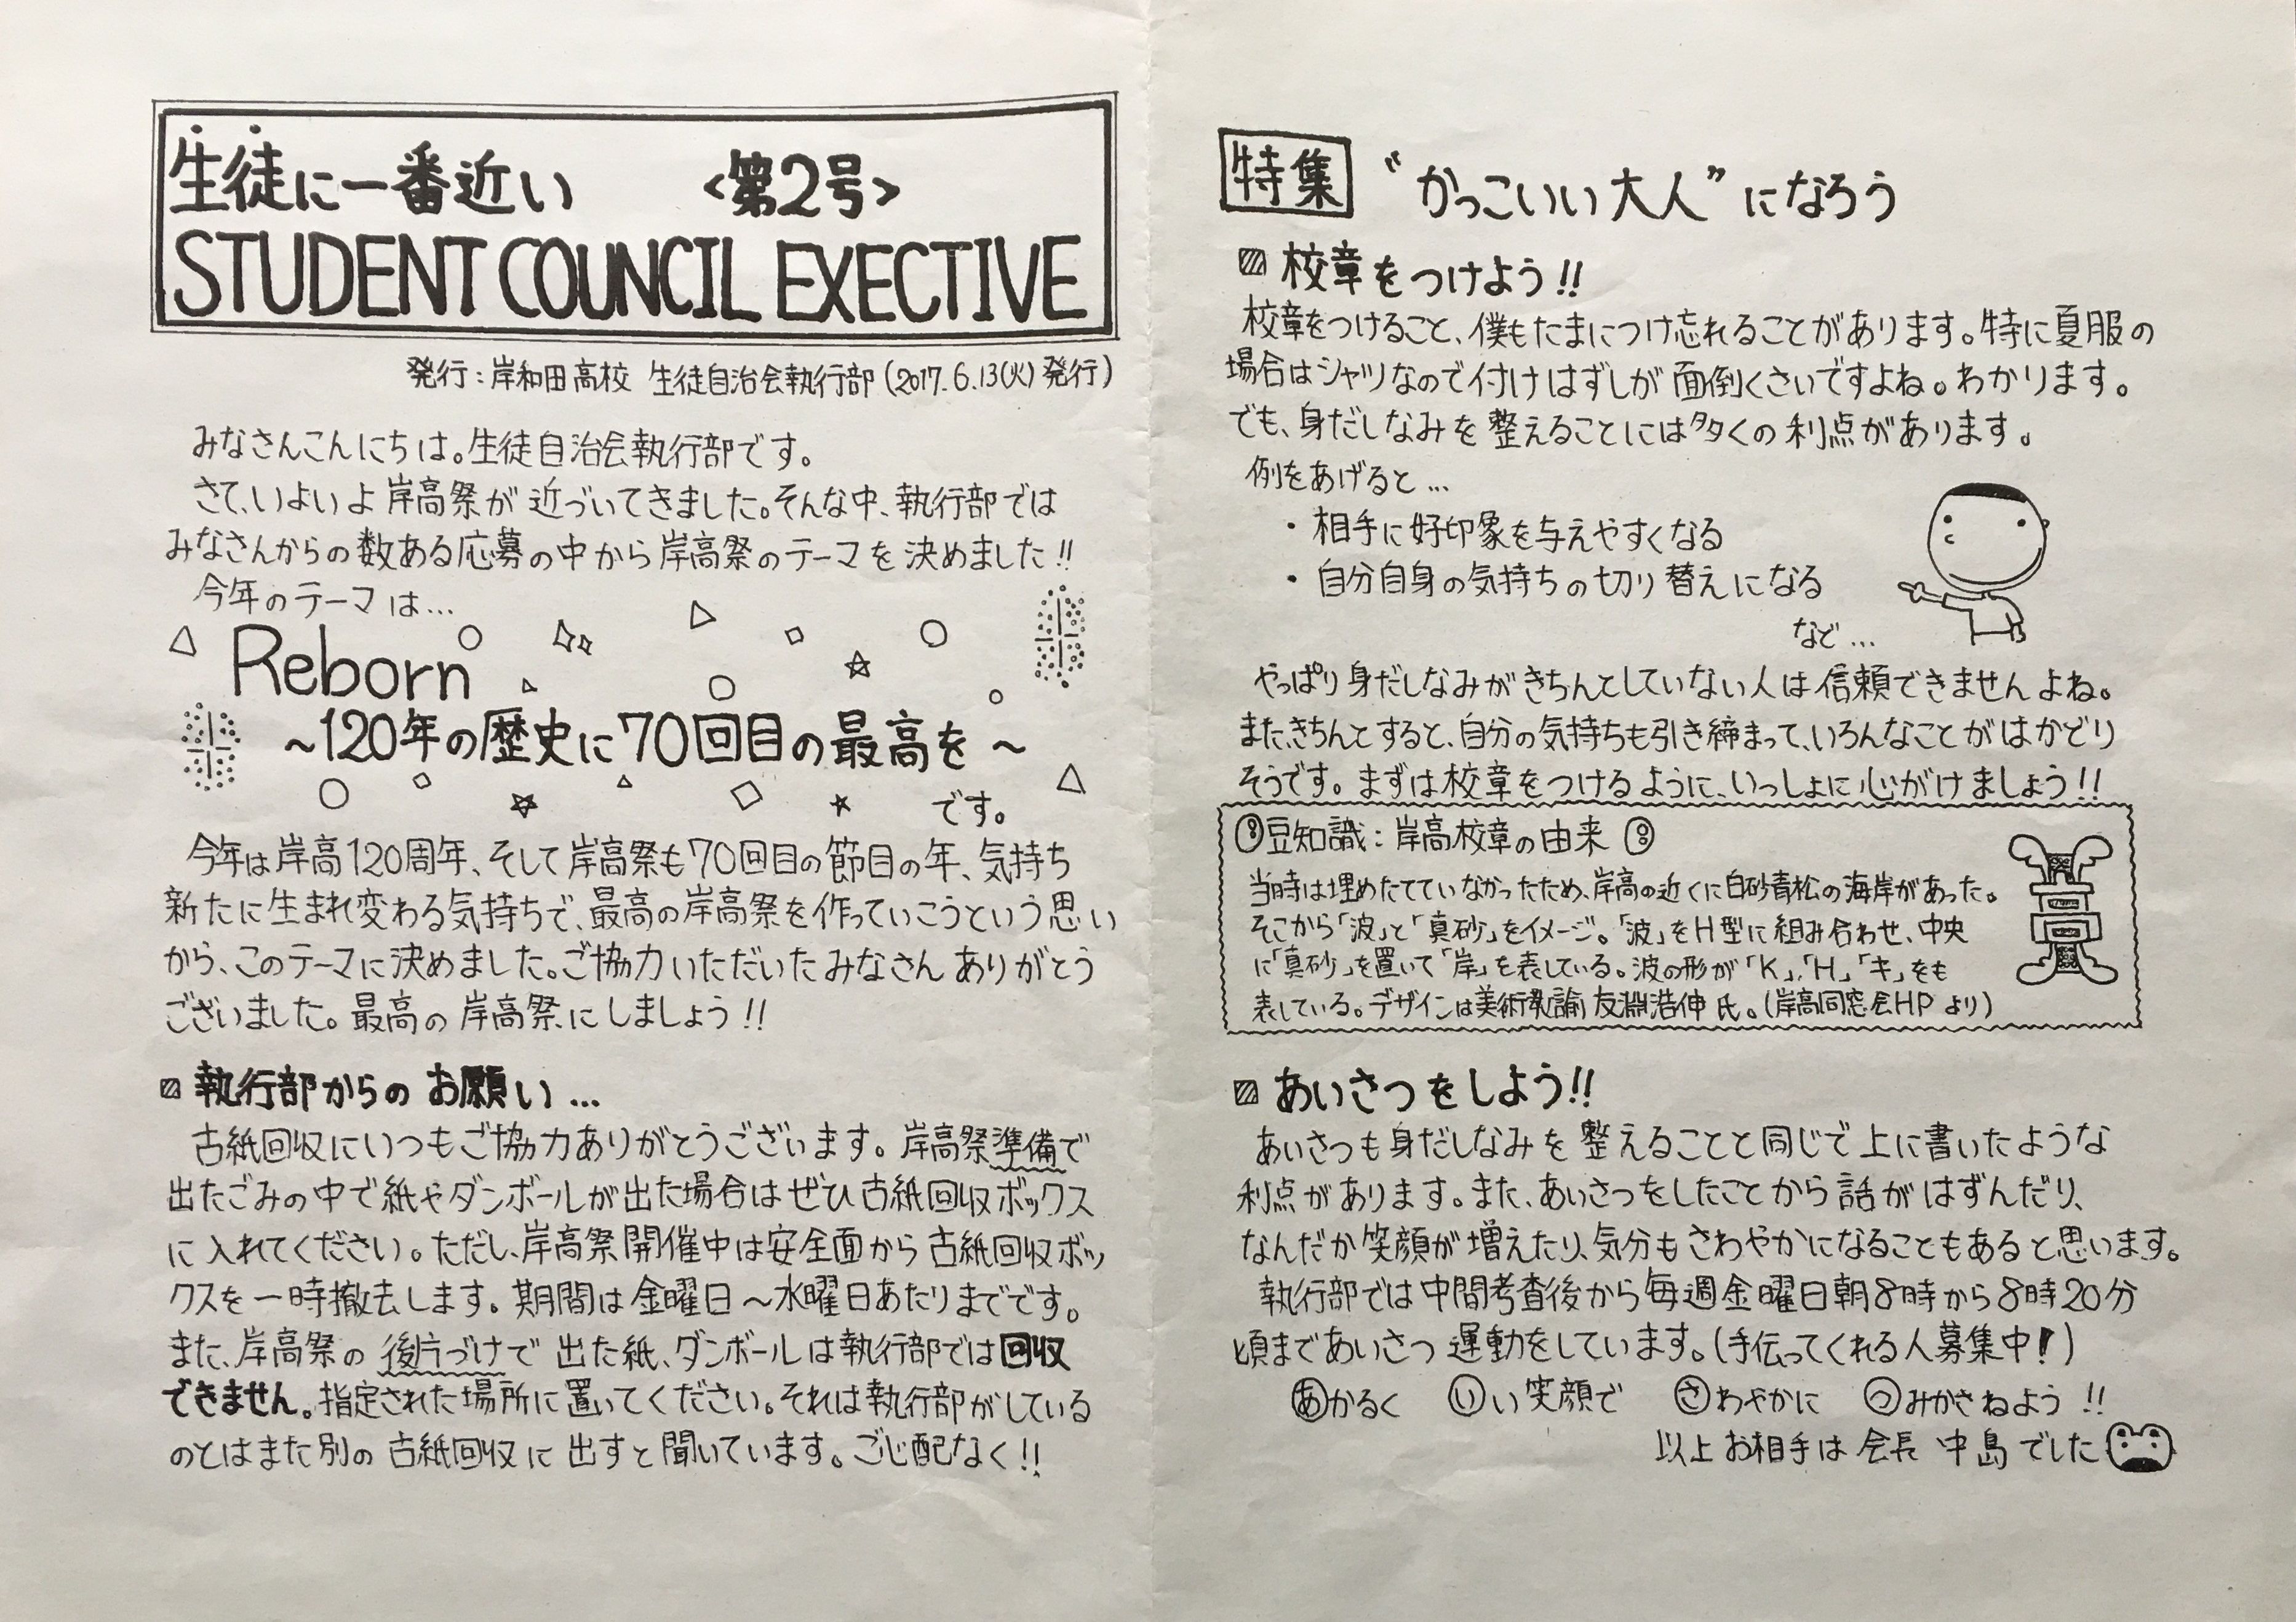 生徒に一番近い <第2号>
STUDENT COUNCIL EXECTIVE
発行:岸和田高校 生徒自治会執行部(2017.6.13(火)発行)
みなさんこんにちは。生徒自治会執行部です。
さて、いよいよ岸高祭が近づいてきました。そんな中、執行部では
みなさんからの数ある応募の中から岸高祭のテーマを決めました!!
今年のテーマは…
Reborn
~120年の歴史に70回目の最高を~
です。
今年は岸高120周年、そして岸高祭も70回目の節目の年、気持ち
新たに生まれ変わる気持ちで、最高の岸高祭を作っていこうという思い
から、このテーマに決めました。ご協力いただいたみなさんありがとう
ございました。最高の岸高祭にしましょう!!
執行部からのお願い…
古紙回収にいつもご協力ありがとうございます。岸高祭準備で
出たごみの中で紙やダンボールが出た場合はぜひ古紙回収ボックス
に入れてください。ただし、岸高祭開催中は安全面から古紙回収ボッ
クスを一時撤去します。期間は金曜日~水曜日あたりまでです。
また、岸高祭の後片づけで出た紙、ダンボールは執行部では回収
できません。指定された場所に置いてください。それは執行部がしている
のとはまた別の古紙回収に出すと聞いています。ご心配なく!!
特集 “かっこいい大人”になろう
校章をつけよう!!
校章をつけること、僕もたまにつけ忘れることがあります。特に夏服の
場合はシャツなので付けはずしが面倒くさいですよね。わかります。
でも、身だしなみを整えることには多くの利点があります。
例をあげると…
・相手に好印象を与えやすくなる
・自分自身の気持ちの切り替えになる
など…
やっぱり身だしなみがきちんとしていない人は信頼できませんよね。
また、きちんとすると、自分の気持ちも引き締まって、いろんなことがはかどり
そうです。まずは校章をつけるように、いっしょに心がけましょう!!
豆知識:岸高校章の由来
当時は埋めたてていなかったため、岸高の近くに白砂青松の海岸があった。
そこから「波」と「真砂」をイメージ。「波」をH型に組み合わせ、中央
に「真砂」を置いて「岸」を表している。波の形が「K」、「H」、「キ」をも
表している。デザインは美術教諭 友淵浩伸 氏。(岸高同窓会HPより)
高
あいさつをしよう!!
あいさつも身だしなみを整えることと同じで上に書いたような
利点があります。また、あいさつをしたことから話がはずんだり、
なんだか笑顔が増えたり、気分もさわやかになることもあると思います。
執行部では中間考査後から毎週金曜日朝8時から8時20分
頃まであいさつ運動をしています。(手伝ってくれる人募集中!)
あかるく いい笑顔で さわやかに つみかさねよう!!
以上お相手は会長 中島でした